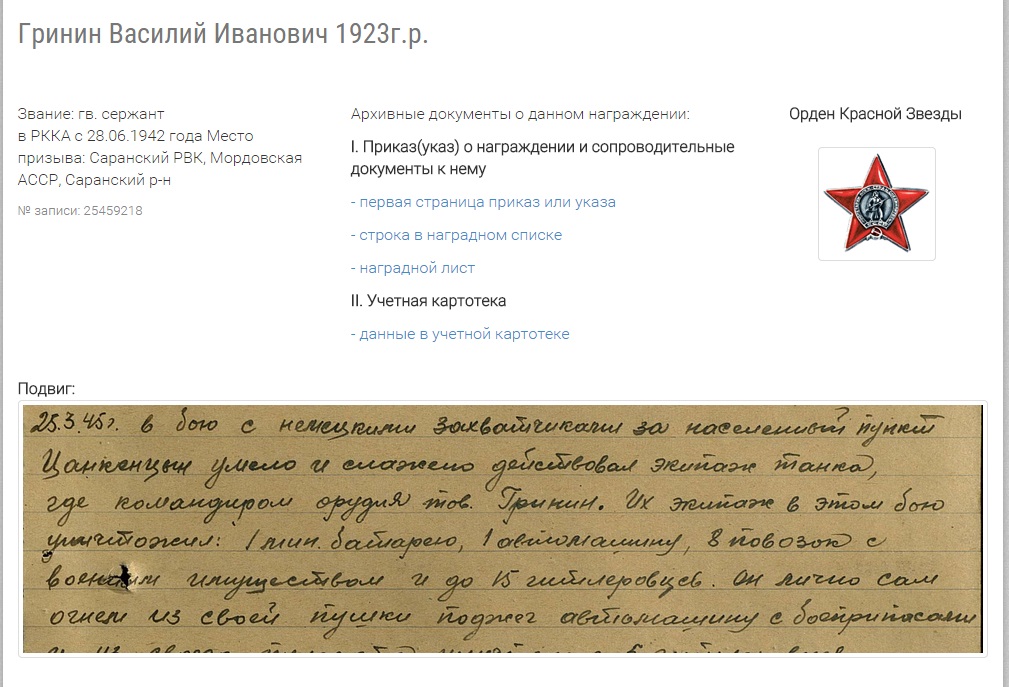 Гринин Василий Иванович 1923г.р.
Звание: гв. сержант
в РККА с 28.06.1942 года Место
призыва: Саранский РВК, Мордовская
АССР, Саранский р-н
№ записи: 25459218
Архивные документы о данном награждении:
I. Приказ(указ) о награждении и сопроводительные
документы к нему
- первая страница приказ или указа
- строка в наградном списке
- наградной лист
II. Учетная картотека
- данные в учетной картотеке
Орден Красной Звезды
Подвиг:
25.3.45г. в бою с немецкими захватчиками за населенный пункт
Цанкенцын умело и слажено действовал экипаж танка,
где командиром орудия тов. Гринин. Их экипаж в этом бою
уничтожил: 1 мин. батарею, 1 автомашину, 8 повозок с
военным имуществом и до 15 гитлеровцев. Он лично сам
огнем из своей пушки поджег автомашину с боеприпасами